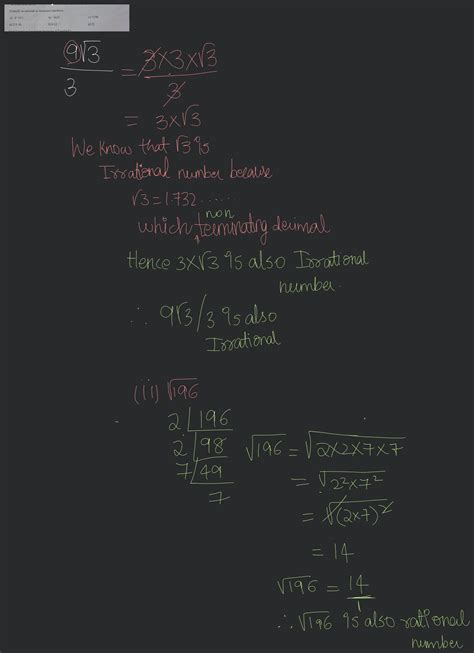 9√3/3 = 3×3×√3/3
= 3×√3
We know that √3 is
Irrational number because
√3 = 1.732 ......
which non terminating decimal
Hence 3×√3 is also Irrational
number.
∴ 9√3/3 is also
Irrational
(ii) √196
2 | 196
2 | 98
7 | 49
7
√196 = √2×2×7×7
= √2²×7²
= √(2×7)²
= 14
√196 = 14/1
∴ √196 is also rational
number